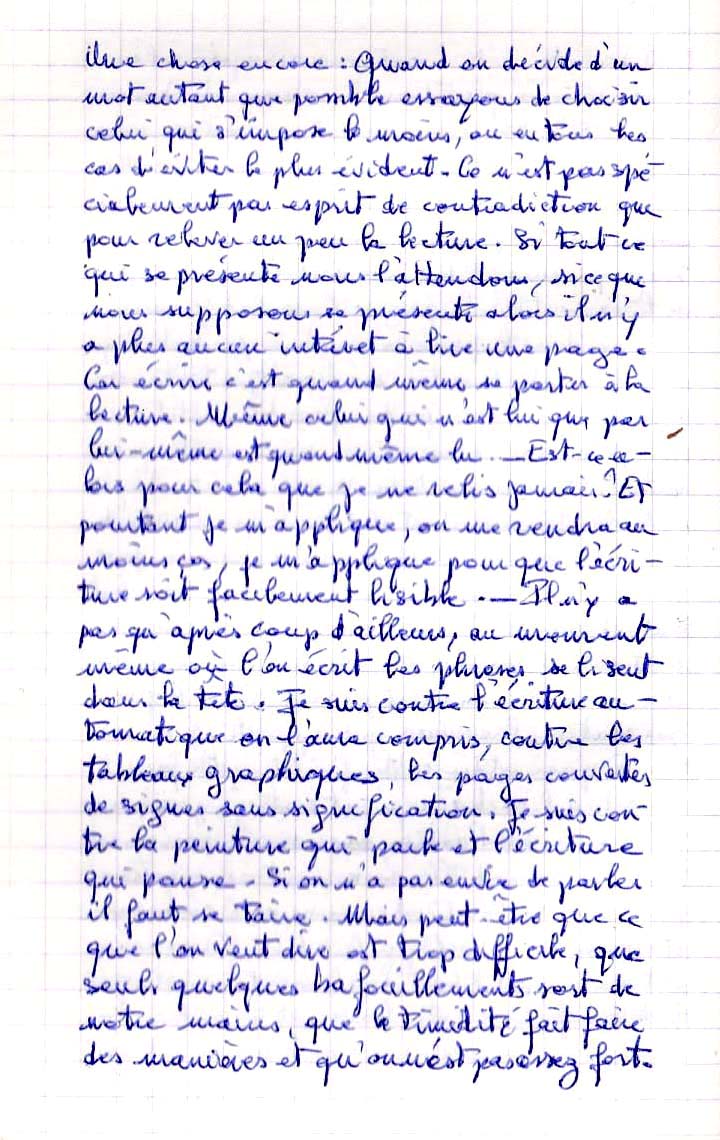 Une chose encore : Quand on décide d'un
mot autant que possible essayons de choisir
celui qui s'impose le moins, ou en tous les
cas d'éviter le plus évident. Ce n'est pas spé
cialement par esprit de contradiction que
pour relever un peu la lecture. Si tout ce
qui se présente nous l'attendons, si ce que
nous supposons se présente alors il n'y
a plus aucun intérêt à lire une page.
Car écrire c'est quand même se porter à la
lecture. Même celui qui n'est lu que par
lui-même est quand même lu. — Est-ce a-
lors pour cela que je ne relis jamais ? Et
pourtant je m'applique, on me rendra au
moins ça, je m'applique pour que l'écri-
ture soit facilement lisible. — Il n'y a
pas qu'après coup d'ailleurs, au moment
même où l'on écrit les phrases se lisent
dans la tête. Je suis contre l'écriture au-
tomatique on l'aura compris, contre les
tableaux graphiques, les pages couvertes
de signes sans signification. Je suis con
tre la peinture qui parle et l'écriture
qui pause. Si on n'a pas envie de parler
il faut se taire. Mais peut-être que ce
que l'on veut dire est trop difficile, que
seuls quelques bafouillements sort de
notre mains, que la timidité fait faire
des manières et qu'on n'est pas assez fort.